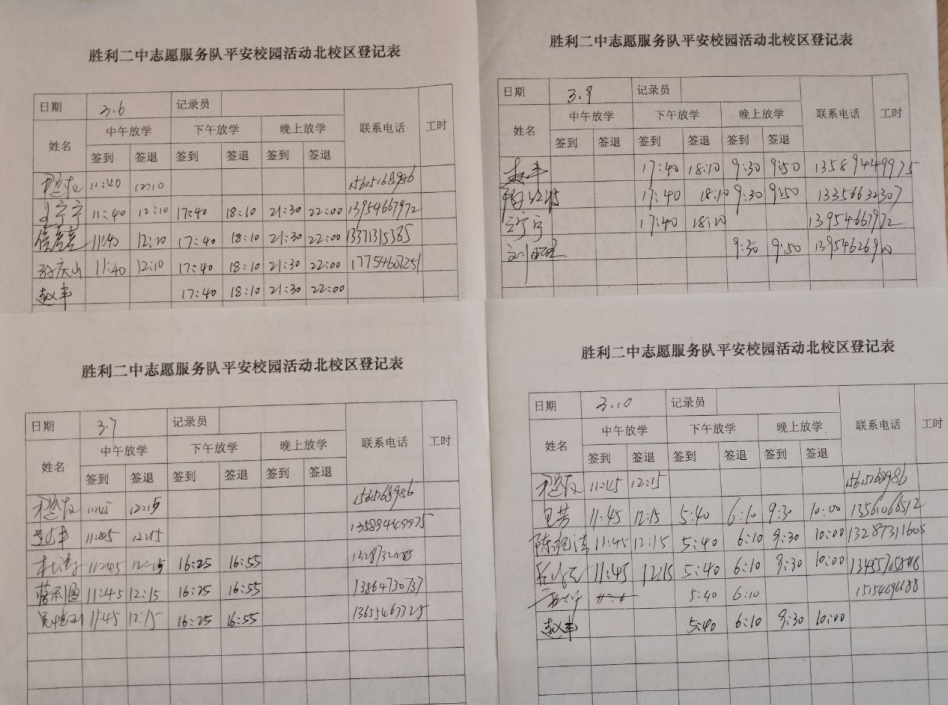 胜利二中志愿服务队平安校园活动北校区登记表
日期 3.6 记录员 联系电话 工时
姓名 中午放学 下午放学 晚上放学
签到 签退 签到 签退 签到 签退
11:40 12:10
宁宁 11:40 12:10 17:40 18:10 21:30 22:00 13954667972
11:40 12:10 17:40 18:10 21:30 22:00 13371315385
11:40 12:10 17:40 18:10 21:30 22:00
赵丰 17:40 18:10 21:30 22:00
胜利二中志愿服务队平安校园活动北校区登记表
日期 3.9 记录员 联系电话 工时
姓名 中午放学 下午放学 晚上放学
签到 签退 签到 签退 签到 签退
赵丰 17:40 18:10 9:30 9:50 13589449975
17:40 18:10 9:30 9:50 13356632307
宁宁 17:40 18:10 13954667972
刘 9:30 9:50
胜利二中志愿服务队平安校园活动北校区登记表
日期 3.7 记录员 联系电话 工时
姓名 中午放学 下午放学 晚上放学
签到 签退 签到 签退 签到 签退
11:45 12:15
赵丰 11:45 12:15 13589449975
11:45 12:15 16:25 16:55
11:45 12:15 16:25 16:55 13864730737
11:45 12:15 16:25 16:55
胜利二中志愿服务队平安校园活动北校区登记表
日期 3.10 记录员 联系电话 工时
姓名 中午放学 下午放学 晚上放学
签到 签退 签到 签退 签到 签退
11:45 12:15
11:45 12:15 5:40 6:10 9:30 10:00 13561066512
11:45 12:15 5:40 6:10 9:30 10:00 13287311605
11:45 12:15 5:40 6:10 9:30 10:00
5:40 6:10
赵丰 5:40 6:10 9:30 10:00